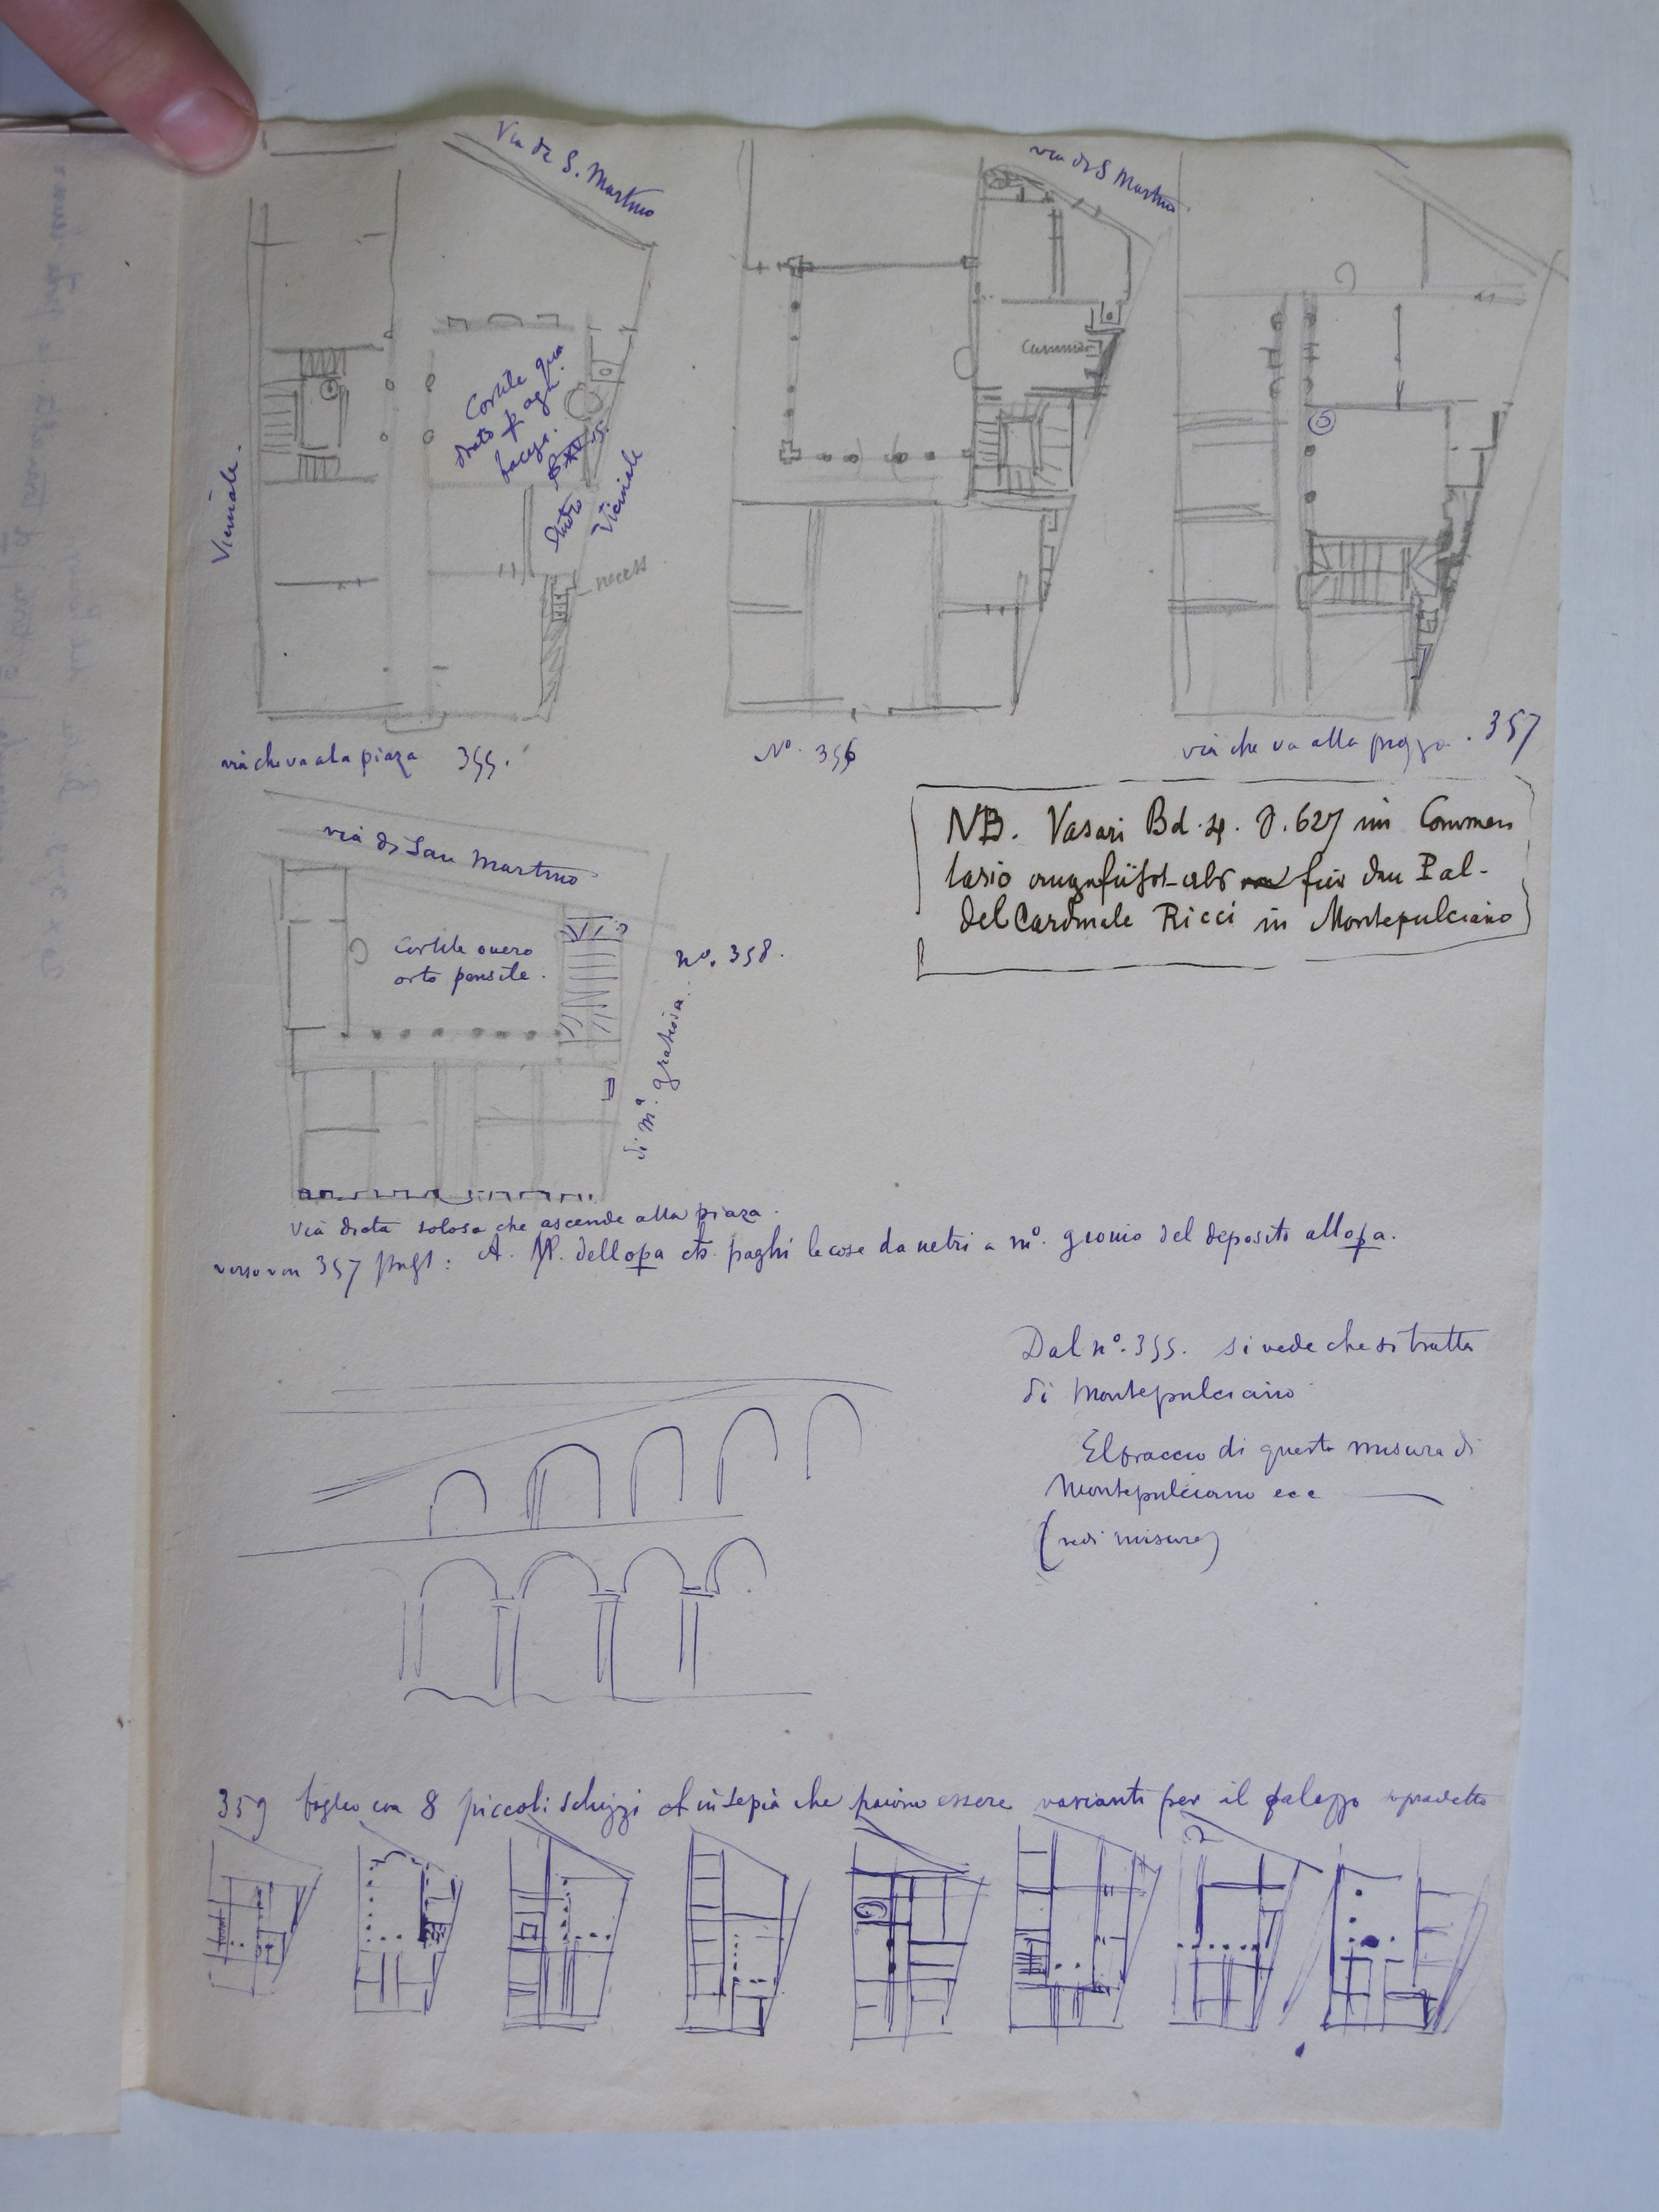 Via di S. Martino
Cortile qua
drato
facega.
Studio
Vicinale
Vicinale.
necess
via che va ala piaza 355.
via di S Martino
Camera
No. 356
via che va alla piazza. 357
NB. Vasari Bd. 4. S. 627 im Commen
tario angeführt als für den Pal-
del Cardinale Ricci in Montepulciano
via di San Martino
Cortile overo
orto pensile.
no. 358.
di ma. gratiosa.
Via dicta solosa che ascende alla piaza.
verso von 357 sagt: A. P. dellopa ch. paghi le cose da vetri a mo. gionio del deposito allopa.
Dal no. 355. si vede che si tratta
di Montepulciano
El braccio di questa misura di
Montepulciano ecc
(vedi misure)
359 foglio con 8 piccoli schizzi A in sepia che paiono essere varianti per il palazzo sopradetto